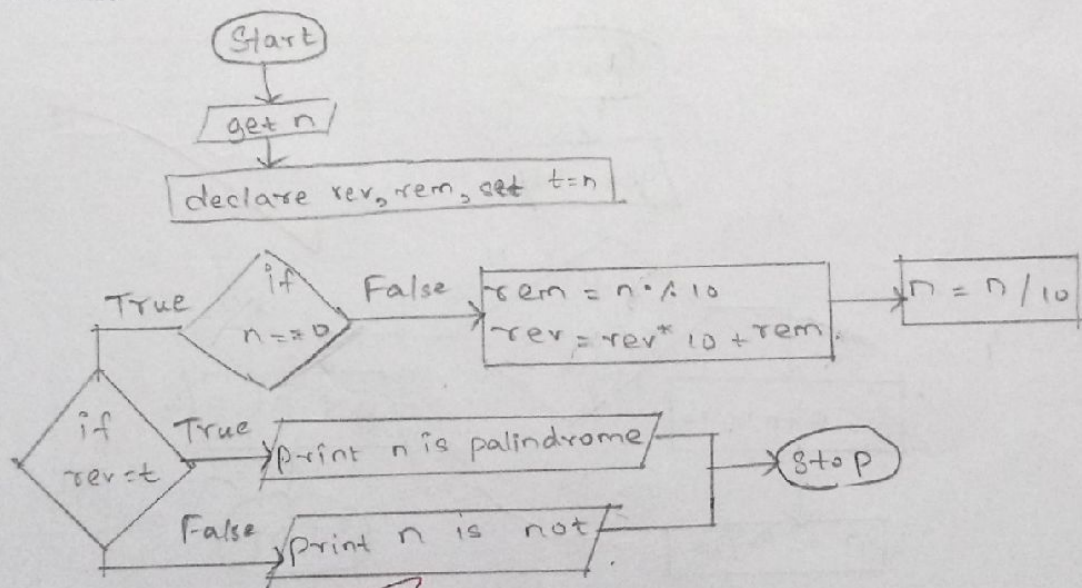 Start
get n
declare rev, rem, set t=n
if
n==0
True
False
rem = n % 10
rev = rev* 10 + rem
n = n / 10
if
rev=t
True
print n is palindrome
Stop
False
print n is not